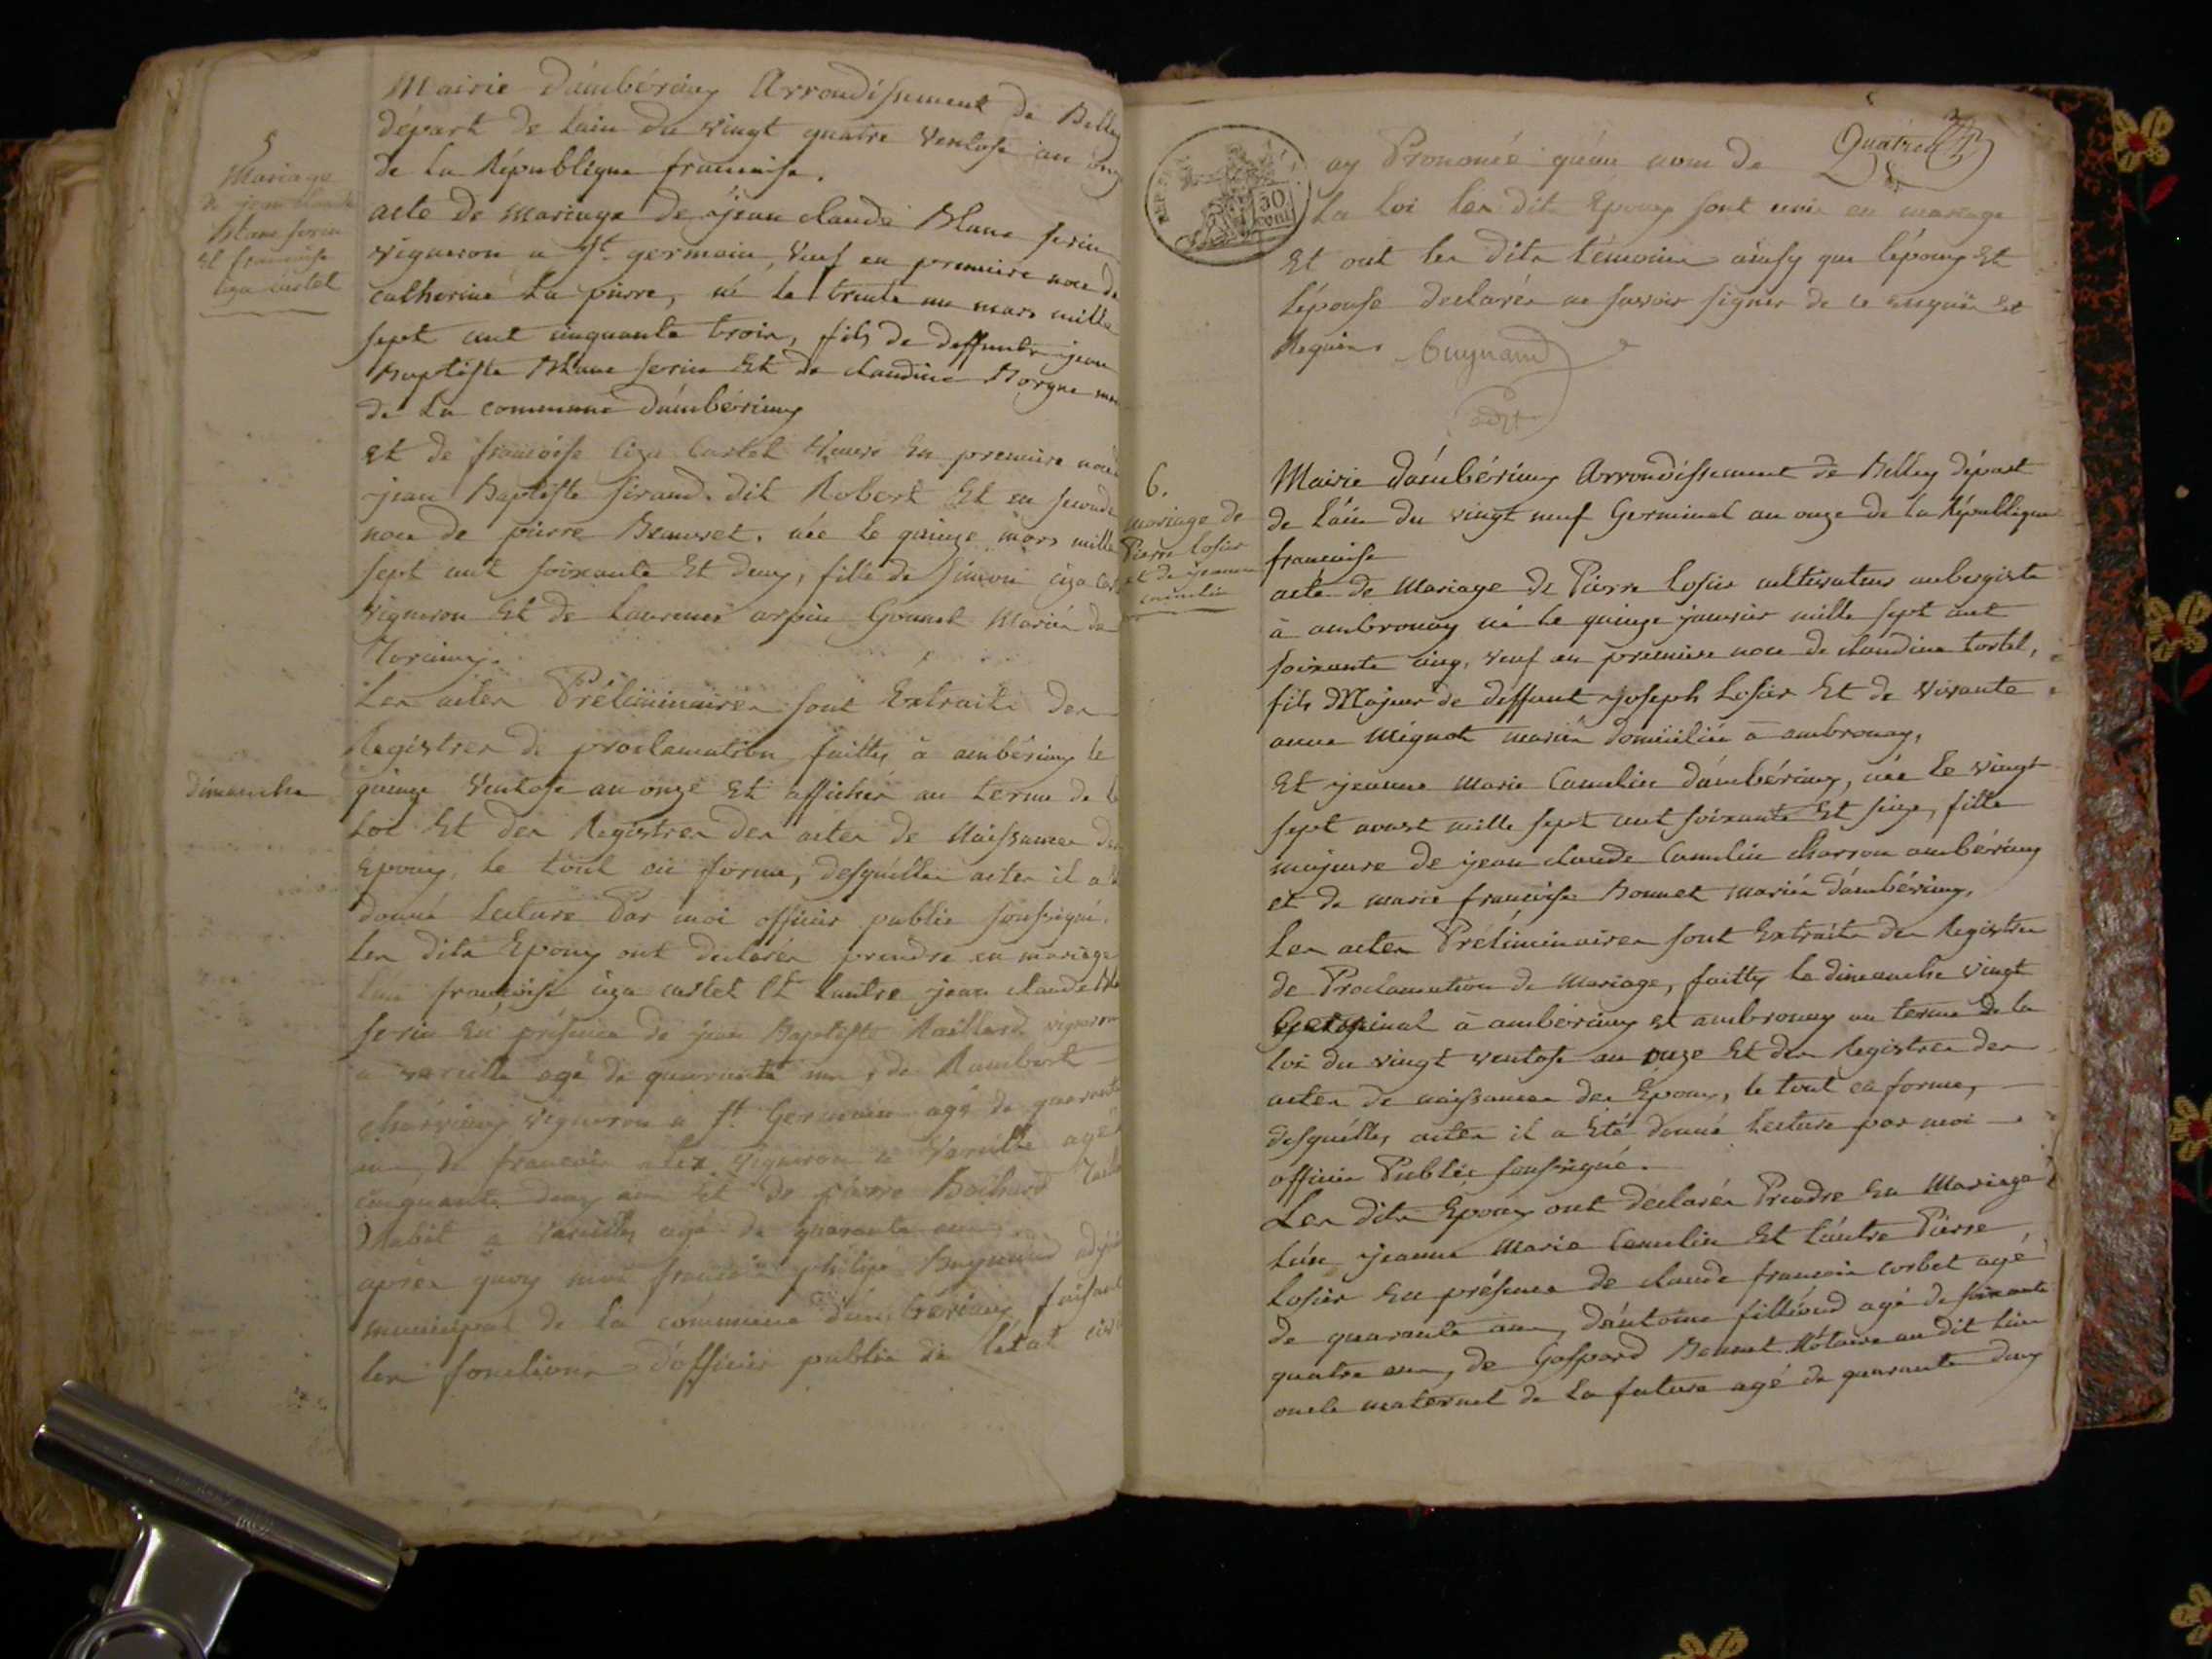 5
Mariage
de jean claude
Blanc serin
et francoise
ciza castel
Mairie d'ambérieux Arrondissement de Belley
départ de lain du vingt quatre Ventose an onze
de la République francaise.
acte de mariage de jean claude Blanc serin
vigneron a St. germain, veuf en premiere noce de
catherine La pierre, né le trente un mars mille
sept cent cinquante trois, fils de deffunts jean
Baptiste Blanc serin Et de claudine Borgne
de la commune d'ambérieux
et de francoise ciza castel Veuve En premiere noce
jean Baptiste sirand dit Robert Et en seconde
noce de pierre Beauvret. née le quinze mars mille
sept cent soixante Et deux, fille de Simon ciza
vigneron Et de Laurence arpin Gonnet Mariés de
Torcieux.
Les actes Préliminaires sont Extraits des
Registres de proclamation faittes à ambérieux le
dimanche
quinze Ventose an onze Et affichés au terme de la
Loi Et des Registres des actes de Naissances des
Epoux, le tout en forme, desquelles actes il a
donné Lecture Par moi officier public soussigné.
Les dits Epoux ont declarés prendre en mariage
lun francoise ciza castel Et lautre jean claude
serin En présence de jean Baptiste Raillard vigneron
a vareille agé de quarante ans, de Rambert
charvieux vigneron a St. Germain agé de quarante
ans, de francois vigneron a Vareille agé
cinquante deux ans Et de pierre Bochard
Habit a Vareilles agé de quarante ans
apres quoy moi francois philipe Buynand adjoint
municipal de la commune d'ambérieux faisant
les fonctions d'officier public de létat civil
Quatre
30
cent
ay Prononcé qu'au nom de
La Loi les dits Epoux sont unis en mariage
Et ont les dits témoins ainsy que lépoux Et
Lépouse declarés ne savoir signer de ce enquis Et
Requis. Buynand
adjt
6.
mariage de
Pierre Losier
et de jeanne
camelin
Mairie d'ambérieux Arrondissement de Belley départ
de lain du vingt neuf Germinal an onze de la République
francaise
acte de Mariage de Pierre Losier cultivateur aubergiste
à ambronay né le quinze janvier mille sept cent
soixante cinq, veuf en premiere noce de claudine tortel,
fils Majeur de deffunt joseph Losier Et de vivante
anne Mignot mariés domiciliés à ambronay,
Et jeanne Marie Camelin d'ambérieux, née le vingt
sept aoust mille sept cent soixante Et seize, fille
majeure de jean claude Camelin charron ambérieux
et de marie francoise Bonnet mariés d'ambérieux.
Les actes Préliminaires sont Extraits des Registres
de Proclamation de Mariage, faittes le dimanche vingt
Germinal à ambérieux et ambronay au terme de la
loi du vingt ventose an onze Et des Registres des
actes de naissances des Epoux, le tout en forme,
desquelles actes il a été donné Lecture par moi
officier Public soussigné.
Les dits Epoux ont declarés Prendre En Mariage
L'un jeanne Marie Camelin Et Lautre Pierre
Losier En présence de claude francois corbet agé
de quarante ans, d'antoine filliond agé de soixante
quatre ans, de Gaspard Bonnet Notaire au dit lieu
oncle maternel de La future agé de quarante deux